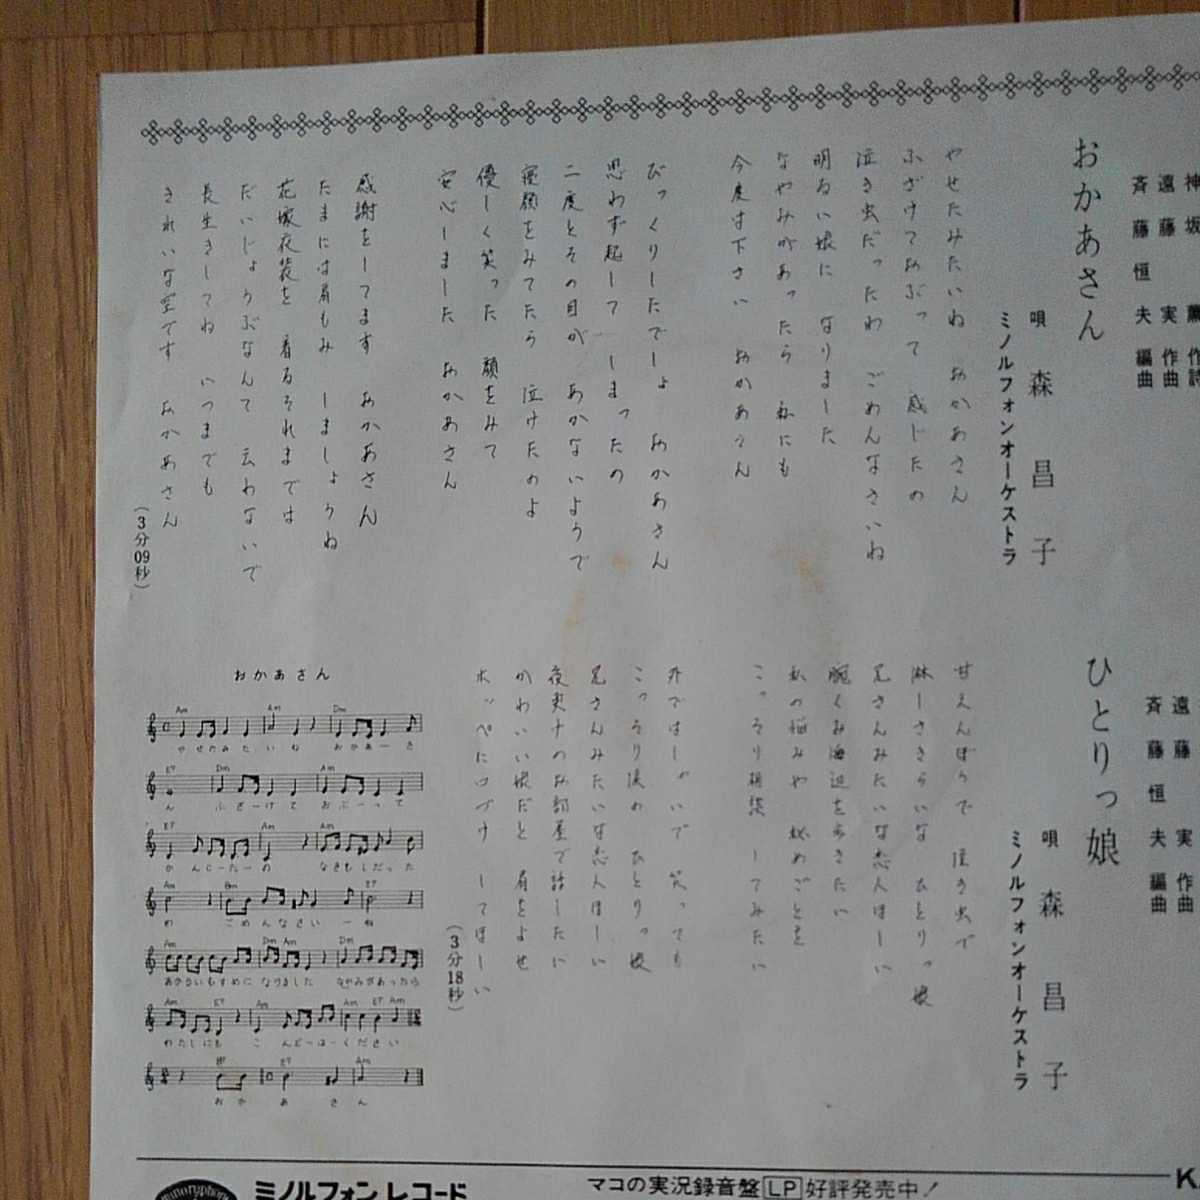 おかあさん
神坂 薫 作詩
遠藤 実 作曲
斉藤恒夫 編曲
唄 森 昌 子
ミノルフォンオーケストラ
やせたみたいね おかあさん
ふざけておぶって 感じたの
泣き虫だったわ ごめんなさいね
明るい娘に なりました
なやみがあったら 私にも
今度は下さい おかあさん
びっくりしたでしょ おかあさん
思わず起して しまったの
二度とその目が あかないようで
寝顔をみてたら 泣けたのよ
優しく笑った 顔をみて
安心しました おかあさん
感謝をしてます おかあさん
たまには肩もみ しましょうね
花嫁衣装を 着るそれまでは
だいじょうぶなんて 云わないで
長生きしてね いつまでも
きれいな空です おかあさん
(3分09秒)
ひとりっ娘
遠藤 実 作曲
斉藤恒夫 編曲
唄 森 昌 子
ミノルフォンオーケストラ
甘えんぼうで 泣き虫で
淋しさきらいな ひとりっ娘
兄さんみたいな恋人ほしい
腕くみ海辺を歩きたい
私の悩みや 秘めごとを
こっそり相談 してみたい
外ではしゃいで 笑っても
こっそり涙の ひとりっ娘
兄さんみたいな恋人ほしい
夜更けのお部屋で話したい
かわいい娘だと 肩をよせ
ホッペに口づけ してほしい
(3分18秒)
おかあさん
Am Am Dm
やせたみたいね おかあーさ
E7 Dm Am
ん ふざーけて おぶーって
E7 Am Am
かんじーたーの なきむしだった
Am Bm E7
わ ごめんなさいーね
Am Dm Am Dm
あかるいむすめに なりました なやみがあったら
Am E7 Am Am E7 Am
わたしにも こんどーはーください
E7 Am
おかあさん
ミノルフォン レコード
マコの実況録音盤 LP 好評発売中!